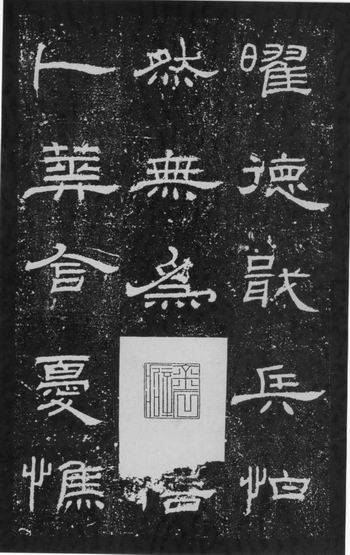 曜德戢兵怕
然無為
卜葬含憂憔